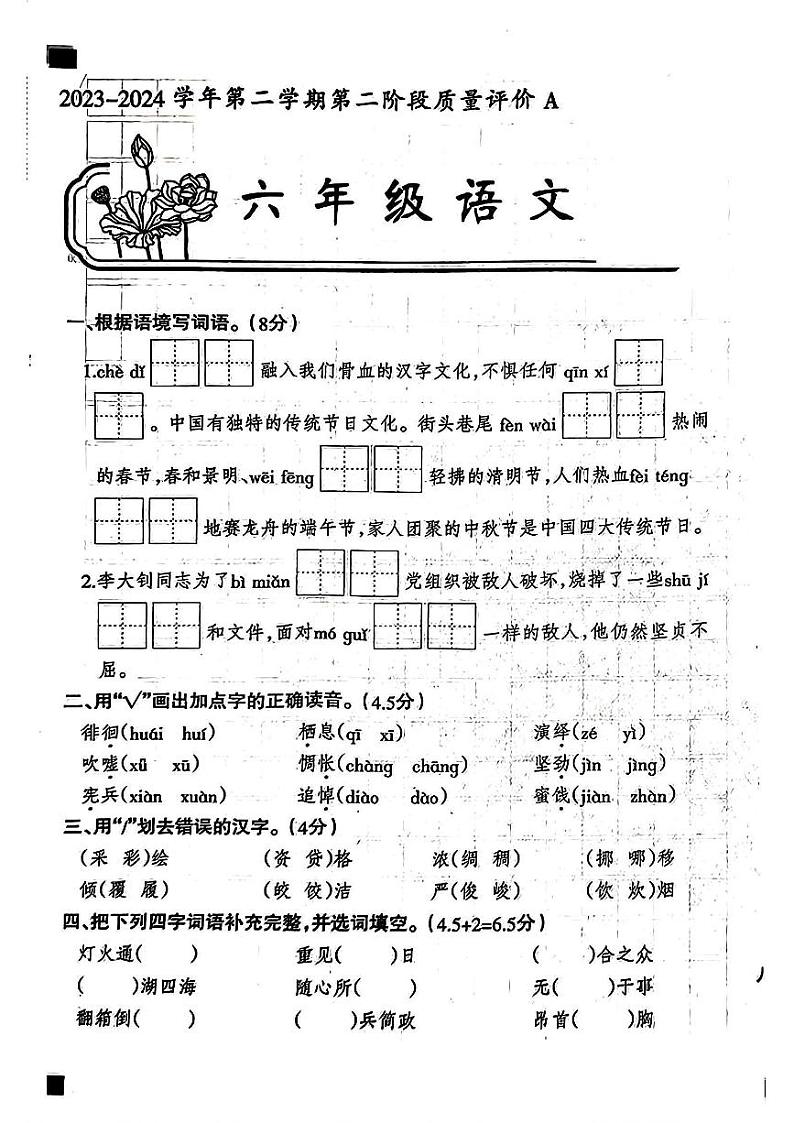 2023-2024 学年第二学期第二阶段质量评价 A
六年级语文
一、根据语境写词语。(8分)
1.chè dǐ 融入我们骨血的汉字文化,不惧任何 qīn xí
。中国有独特的传统节日文化。街头巷尾 fèn wài 热闹
的春节,春和景明、wēi fēng 轻拂的清明节,人们热血fèi téng
地赛龙舟的端午节,家人团聚的中秋节是中国四大传统节日。
2.李大钊同志为了bì miǎn 党组织被敌人破坏,烧掉了一些shū jí
和文件,面对mó guǐ 一样的敌人,他仍然坚贞不
屈。
二、用“√”画出加点字的正确读音。(4.5分)
徘徊(huái huí) 栖息(qī xī) 演绎(zé yì)
吹嘘(xǖ xū) 惆怅(chàng chāng) 坚劲(jìn jìng)
宪兵(xiàn xuàn) 追悼(diào dào) 蜜饯(jiàn zhàn)
三、用“/”划去错误的汉字。(4分)
(采 彩)绘 (资 贷)格 浓(绸 稠) (挪 哪)移
倾(覆 履) (皎 饺)洁 严(俊 峻) (饮 炊)烟
四、把下列四字词语补充完整,并选词填空。(4.5+2=6.5分)
灯火通( ) 重见( )日 ( )合之众
( )湖四海 随心所( ) 无( )于事
翻箱倒( ) ( )兵简政 昂首( )胸